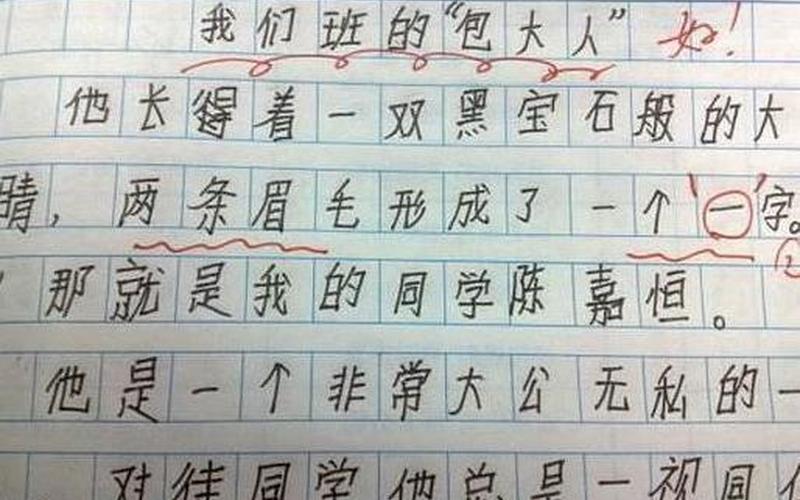 我们班的“包大人” 好!
他长得着一双黑宝石般的大
睛，两条眉毛形成了一个‘一’字。
那就是我的同学陈嘉恒。
他是一个非常大公无私的一
对待同学他总是一视同仁